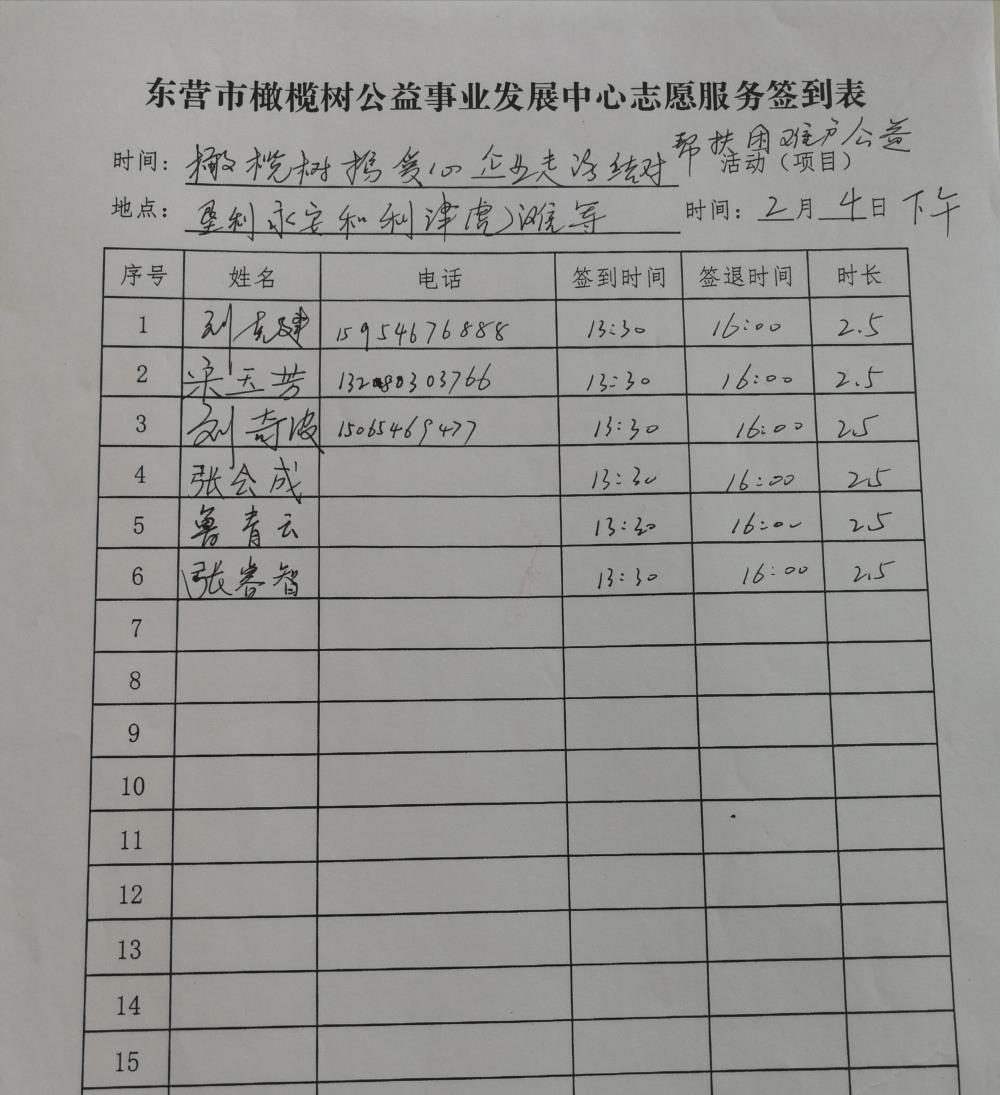 东营市橄榄树公益事业发展中心志愿服务签到表
时间：橄榄树携爱心企业走访结对帮扶困难户公益活动（项目）
地点：垦利永安和利津虎滩等 时间：2月4日下午
序号 姓名 电话 签到时间 签退时间 时长
1 刘克建 15954676888 13:30 16:00 2.5
2 宋玉芳 13:30 16:00 2.5
3 刘奇波 15065469477 13:30 16:00 2.5
4 张会成 13:30 16:00 2.5
5 鲁青云 13:30 16:00 2.5
6 张睿智 13:30 16:00 2.5
7
8
9
10
11
12
13
14
15